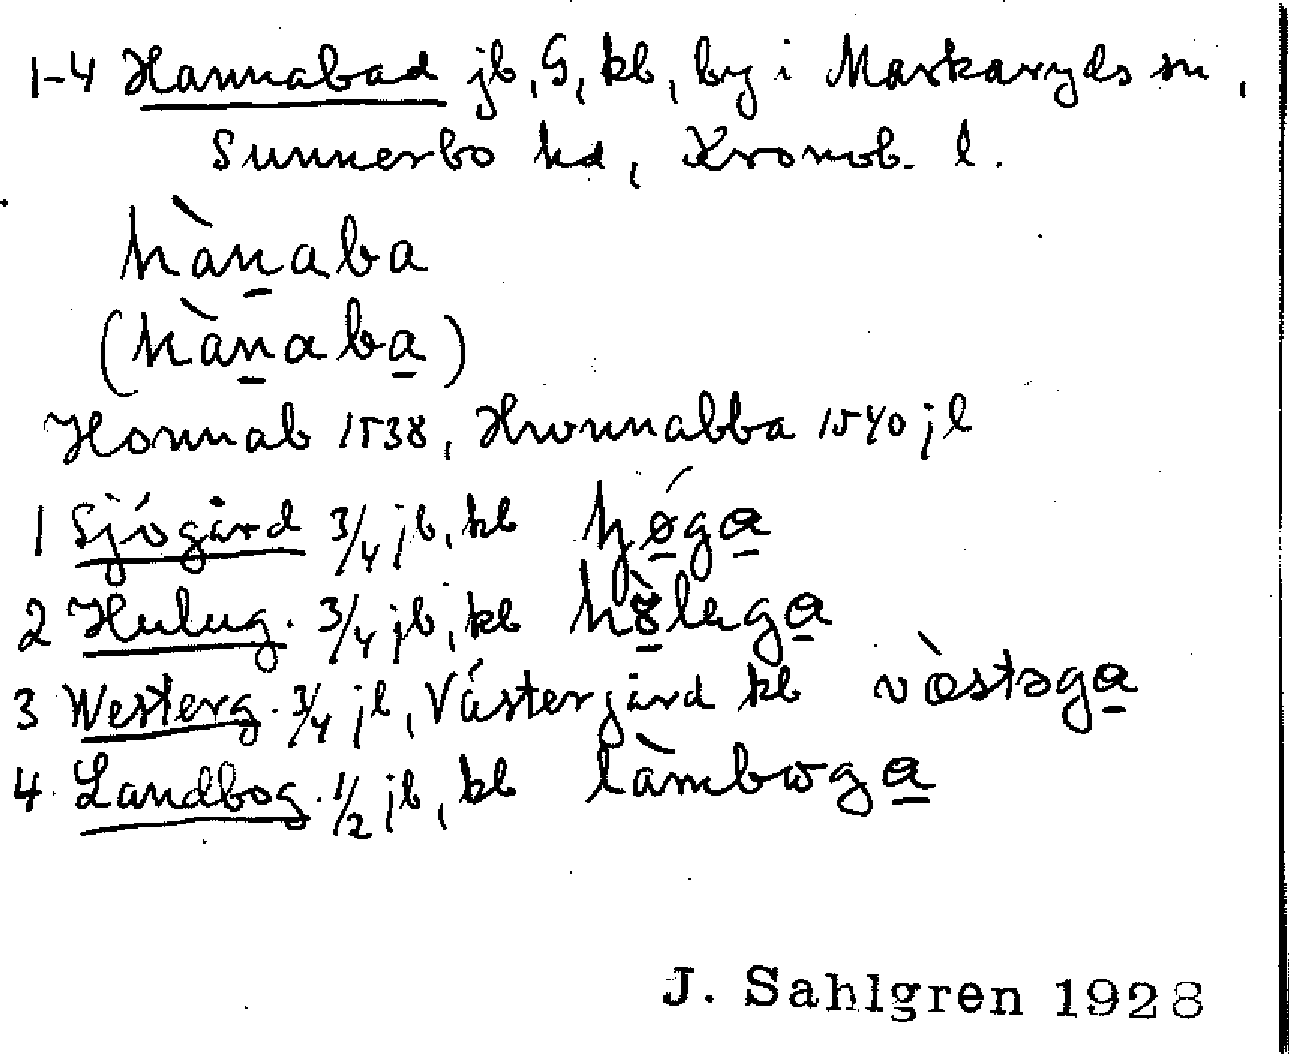 1-4 Hannabad jb, G, kb, by i Markaryds sn,
Sunnerbo hd, Kronob. l.
hànaba
(hànaba)
Honnab 1538, Hwonnabba 1540 jb
1 Sjögård 3/4 jb, kb hjøga
2 Hulug. 3/4 jb, kb
3 Westerg. 3/4 jb, Västergård kb vèstəga
4 Landbog. 1/2 jb, kb làmboga
J. Sahlgren 1928